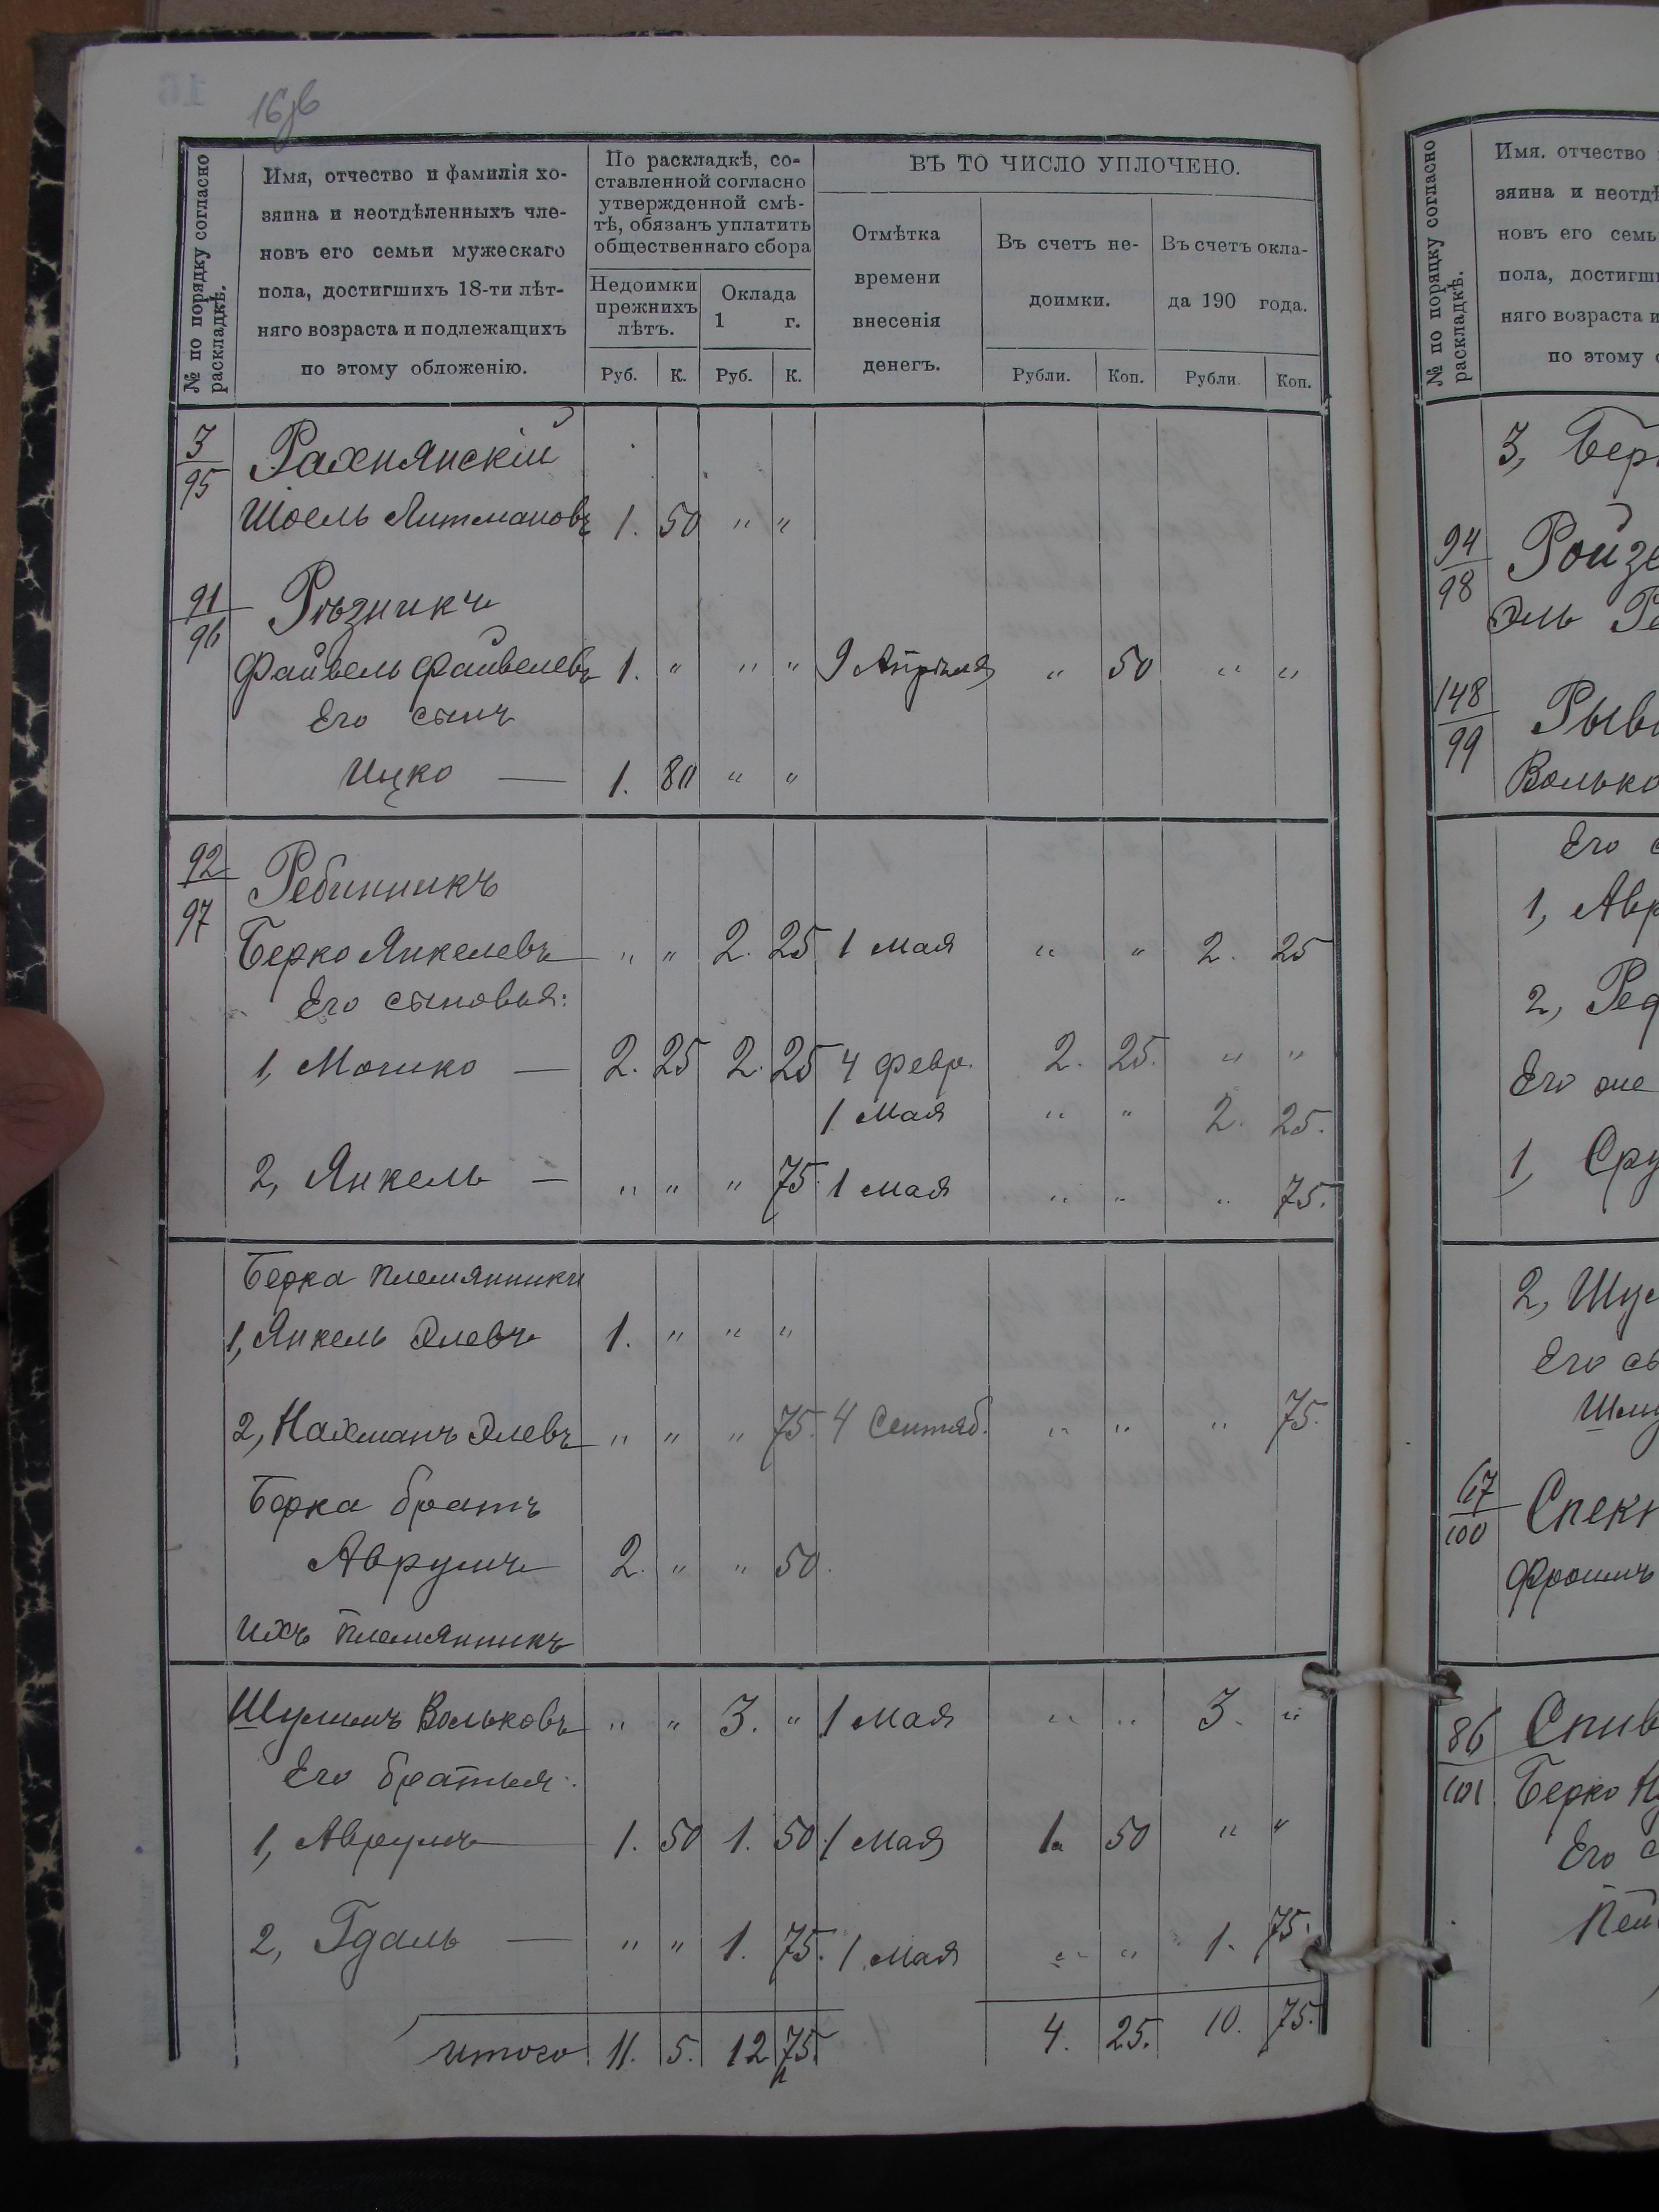 16об
№ по порядку согласно раскладкѣ.
Имя, отчество и фамилія хо-
зяина и неотдѣленныхъ чле-
новъ его семьи мужескаго
пола, достигшихъ 18-ти лѣт-
няго возраста и подлежащихъ
по этому обложенію.
По раскладкѣ, со-
ставленной согласно
утвержденной смѣ-
тѣ, обязанъ уплатить
общественнаго сбора
Недоимки
прежнихъ
лѣтъ.
Оклада
1 г.
Руб. К. Руб. К.
ВЪ ТО ЧИСЛО УПЛОЧЕНО.
Отмѣтка
времени
внесенія
денегъ.
Въ счетъ не-
доимки.
Въ счетъ окла-
да 190 года.
Рубли. Коп. Рубли. Коп.
3/95 Рахнянскій
Шоель Литмановъ 1. 50 " "
91/96 Рѣзникъ
Файвель Файвелевъ 1. " " " 9 Апрѣля " 50 " "
Его сынъ
Ицко — 1. 80 " "
92/97 Ребинникъ
Берко Янкелевъ " " 2. 25 1 Мая " " 2. 25
Его сыновья:
1, Мошко — 2. 25 2. 25 4 февр. 2. 25. " "
1 Мая " " 2. 25.
2, Янкель — " " " 75. 1 Мая " " " 75.
Берка племянники
1, Янкель Элевъ 1. " " "
2, Нахманъ Элевъ " " " 75. 4 Сентяб. " " " 75.
Берка братъ
Аврумъ 2. " " 50.
Ихъ племянникъ
Шулимъ Вольковъ " " 3. " 1 Мая " " 3. "
Его братья:
1, Аврумъ 1. 50 1. 50. 1 Мая 1. 50 " "
2, Гдаль — " " 1. 75. 1 Мая " " 1. 75.
Итого 11. 5. 12 75. 4. 25. 10. 75.
№ по порядку согласно раскладкѣ.
Имя. отчество
зяина и неотдѣ
новъ его семь
пола, достигш
няго возраста и
по этому
3, Бер
94/98 Ройзе
Эль Ре
148/99 Рыв
Волько
Его с
1, Авр
2,
Его же
1, Сру
2, Шул
Его сы
Шму
67/100 Спек
Фроимъ
86/101 Спив
Берко Н
Его с
Пей